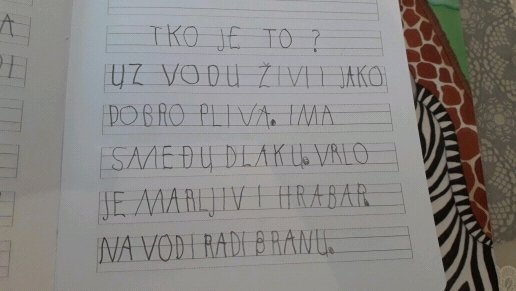 TKO JE TO ?
UZ VODU ŽIVI I JAKO
DOBRO PLIVA. IMA
SMEĐU DLAKU. VRLO
JE MARLJIV I HRABAR.
NA VODI RADI BRANU.